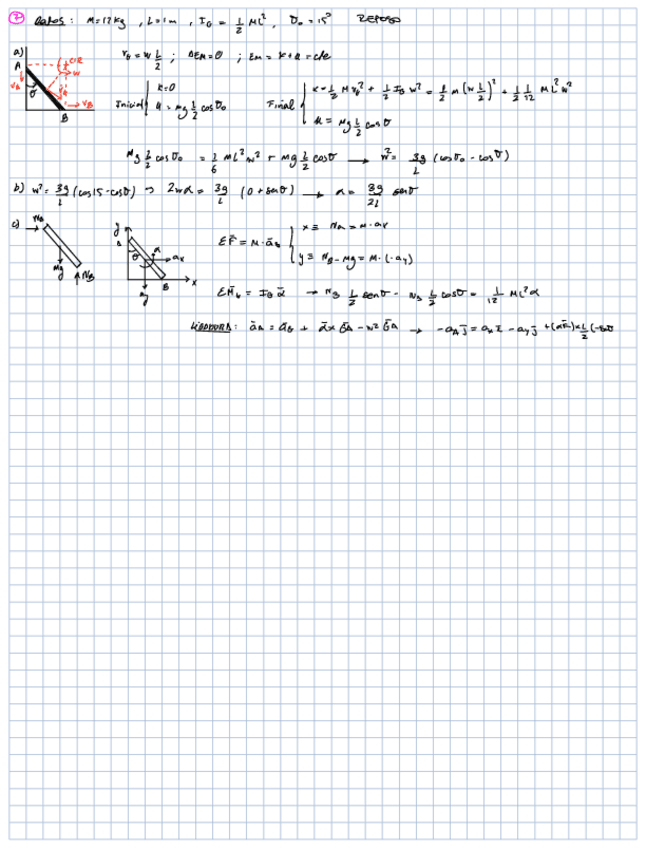 2 Datos: M=12kg, L=1m, I_G = 1/2 ML², θ₀=15° REPOSO
a) v_G = w L/2 ; ΔEm=0 ; Em = K+U = cte
A CIR w v_A θ v_B B
Inicial { K=0
U = mg L/2 cosθ₀
Final { K = 1/2 M v_G² + 1/2 I_G w² = 1/2 m (w L/2)² + 1/2 1/12 ML² w²
U = Mg L/2 cosθ
Mg L/2 cosθ₀ = 1/6 ML² w² + mg L/2 cosθ → w² = 3g/L (cosθ₀ - cosθ)
b) w² = 3g/L (cos15 - cosθ) → 2wα = 3g/L (0 + senθ) → α = 3g/2L senθ
c) N_A Mg N_B
y A θ α a_x B x
ΣF̄ = M·ā_G { x ≡ N_A = M·ax
y ≡ N_B - Mg = M·(-ay)
ΣM̄_G = I_G ᾱ → N_B L/2 senθ - N_B L/2 cosθ = 1/12 ML² α
ā_A = ā_G + ᾱ x ḠA - w² ḠA → -a_A j̄ = a_x ī - a_y j̄ + (αk̄) x L/2 (-senθ